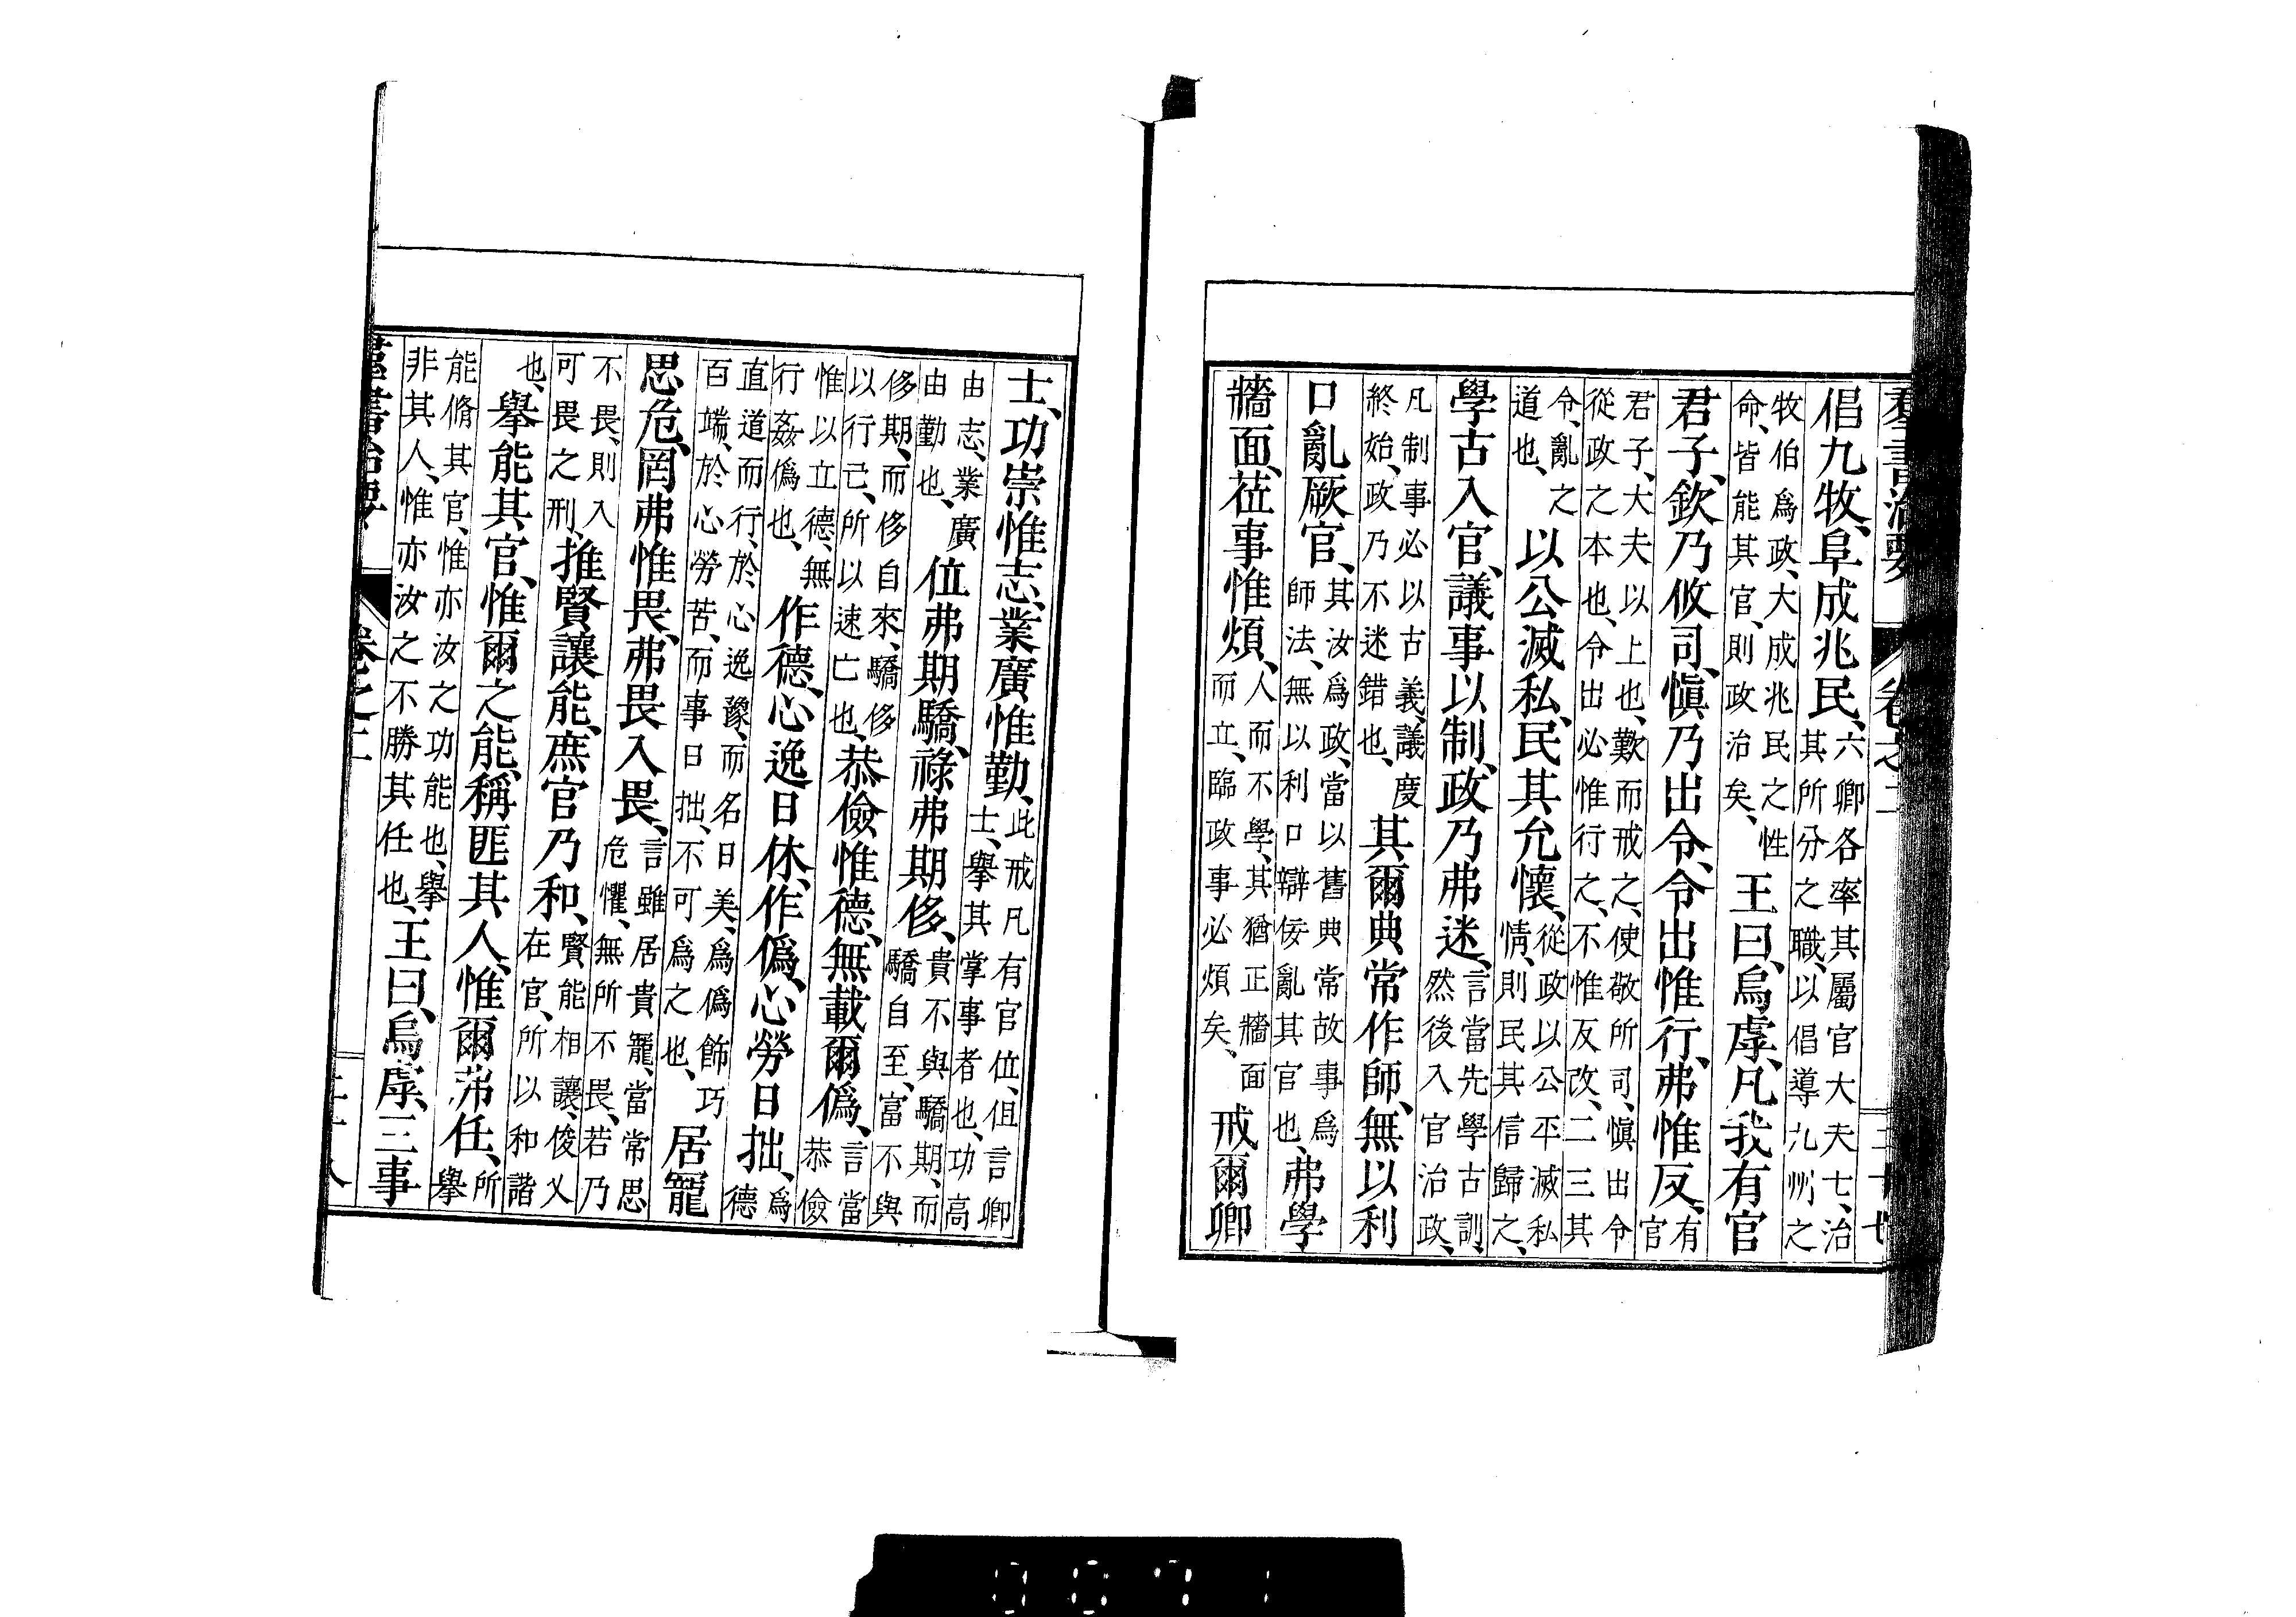 羣書治要 卷之二
倡九牧、阜成兆民、六卿各率其屬官大夫士、治其所分之職、以倡導九州之
牧伯爲政、大成兆民之性命、皆能其官、則政治矣、王曰、烏虖、凡我有官
君子、欽乃攸司、愼乃出令、令出惟行、弗惟反、有官
君子、大夫以上也、歎而戒之、使敬所司、愼出令從政之本也、令出必惟行之、不惟反改、二三其
令、亂之道也、以公滅私、民其允懷、從政以公平滅私情、則民其信歸之、
學古入官、議事以制、政乃弗迷、言當先學古訓、然後入官治政、
凡制事必以古義、議度終始、政乃不迷錯也、其爾典常作師、無以利
口亂厥官、其汝爲政、當以舊典常故事爲師法、無以利口辯佞亂其官也、弗學
牆面、莅事惟煩、人而不學、其猶正牆面而立、臨政事必煩矣、戒爾卿
士、功崇惟志、業廣惟勤、此戒凡有官位、但言卿士、舉其掌事者也、功高
由志、業廣由勤也、位弗期驕、祿弗期侈、貴不與驕期、而驕自至、富不與
侈期、而侈自來、驕侈以行己、所以速亡也、恭儉惟德、無載爾僞、言當恭儉
惟以立德、無行姦僞也、作德、心逸日休、作僞、心勞日拙、爲德
直道而行、於心逸豫、而名日美、爲僞飾巧百端、於心勞苦、而事日拙、不可爲之也、居寵
思危、罔弗惟畏、弗畏入畏、言雖居貴寵、當常思危懼、無所不畏、若乃
不畏、則入可畏之刑、推賢讓能、庶官乃和、賢能相讓、俊乂在官、所以和諧
也、舉能其官、惟爾之能、稱匪其人、惟爾弗任、所舉
能脩其官、惟亦汝之功能也、舉非其人、惟亦汝之不勝其任也、王曰、烏虖、三事
羣書治要 卷之二
0071